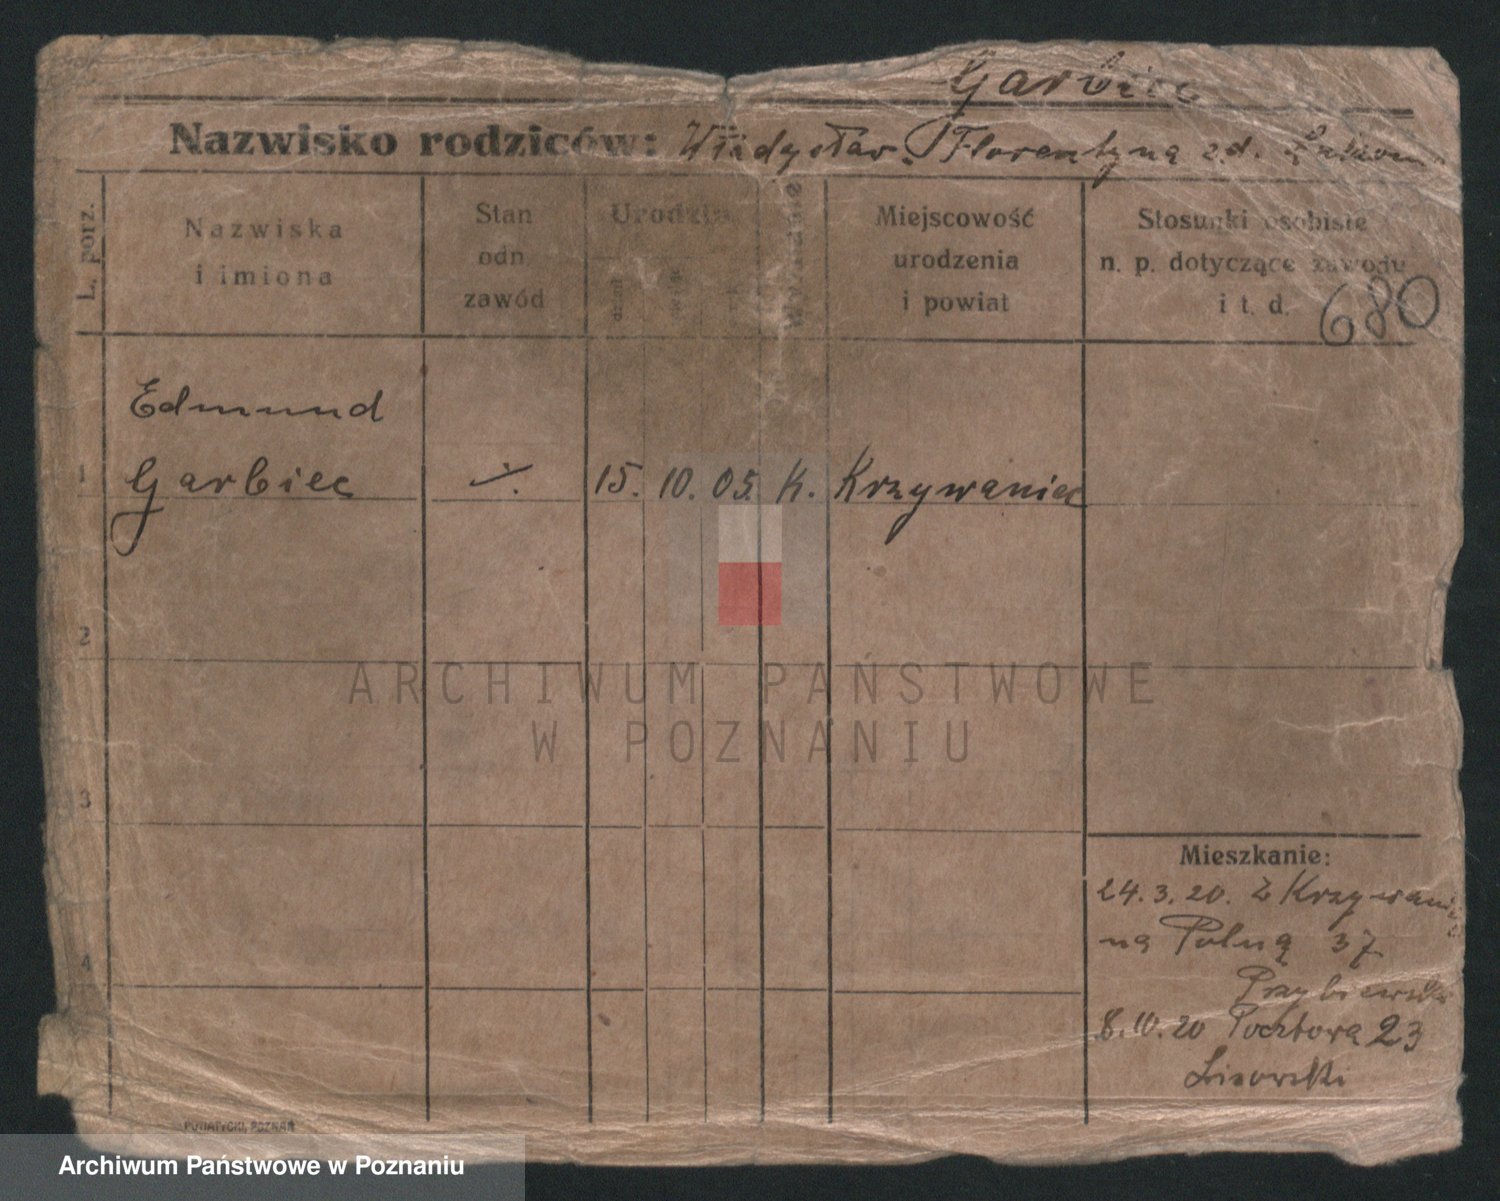 Garbiec
Nazwisko rodziców: Władysław. Florentyna z.d.
L. porz.
Nazwiska
i imiona
Stan
odn.
zawód
Urodzin
dzień
rok
Wyznanie
Miejscowość
urodzenia
i powiat
Stosunki osobiste
n. p. dotyczące zawodu
i t. d.
680
Edmund
1 Garbiec ·/. 15. 10. 05. K. Krzywaniec
2
ARCHIWUM PAŃSTWOWE
W POZNANIU
3
4
Mieszkanie:
24.3.20. Z Krzywaniec
na Polną 37
8.10.20 Pocztowa 23
Lisowski
PUTIATYCKI, POZNAŃ
Archiwum Państwowe w Poznaniu